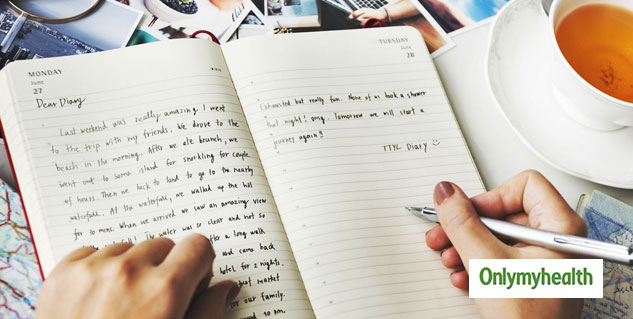 MONDAY
June
27
Dear Diary
Last weekend was really amazing. I went
to the trip with my friends. We drove to the
beach in the morning. After we ate brunch, we
went out to some island for snorkling for couple
of hours. Then we back to land to go to the nearby
waterfall. At the waterfall, we walked up the hill
for 30 mins. When we arrived we saw an amazing view
waterfall! The water was so clear and not so
after a long walk
and came back
hotel for 2 nights.
market
for our family.
TUESDAY
June
28
Exhausted but really fun. None of us took a shower
that night! omg. Tomorrow we will start a
journey again!!
TTYL Diary :)
Onlymyhealth